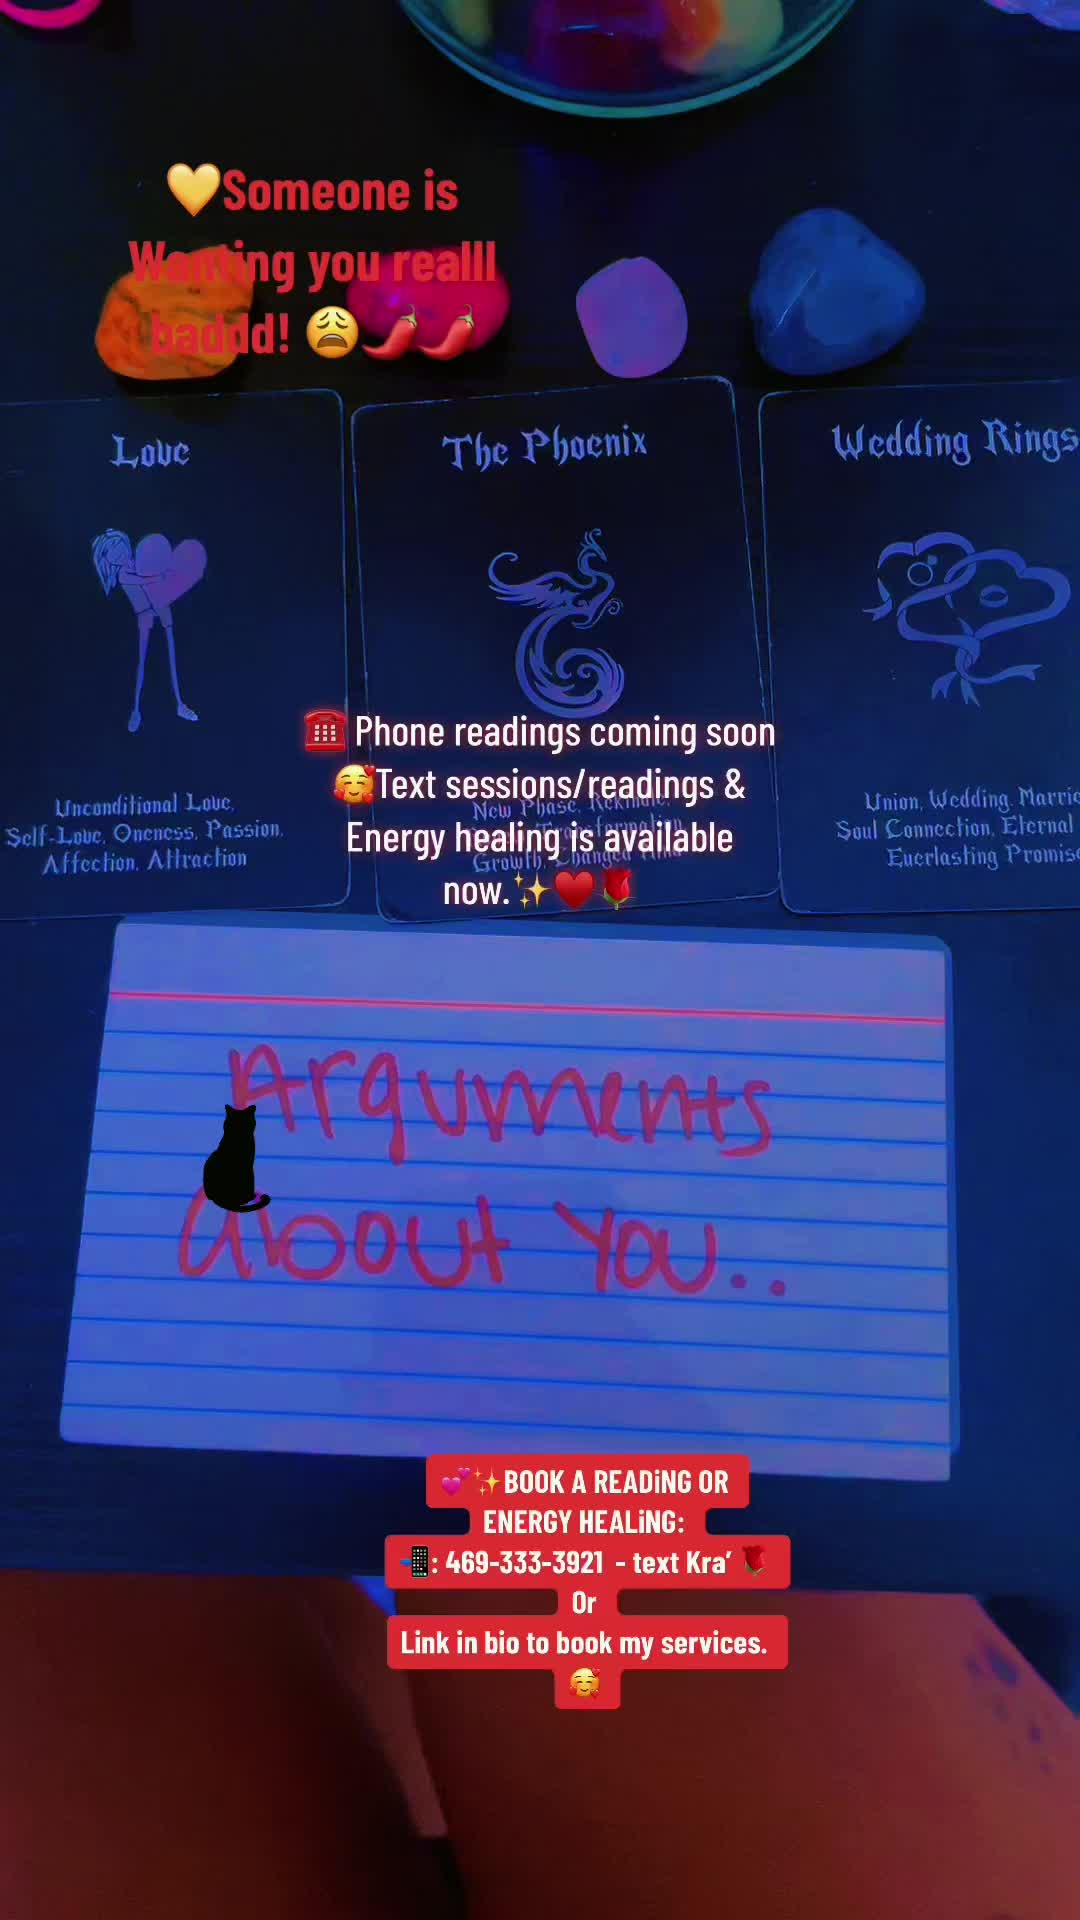 💛Someone is
Wanting you realll
baddd! 😩🌶️🌶️
Love
The Phoenix
Wedding Rings
☎️ Phone readings coming soon
🥰Text sessions/readings &
Energy healing is available
now.✨♥️🌹
Unconditional Love,
Self-Love, Oneness, Passion,
Affection, Attraction
New Phase, Rekindle,
Transformation
Growth, Changed
Union, Wedding, Marria
Soul Connection, Eternal
Everlasting Promise
Arguments
About You..
💕✨BOOK A READiNG OR
ENERGY HEALiNG:
📲: 469-333-3921 - text Kra’ 🌹
Or
Link in bio to book my services.
🥰